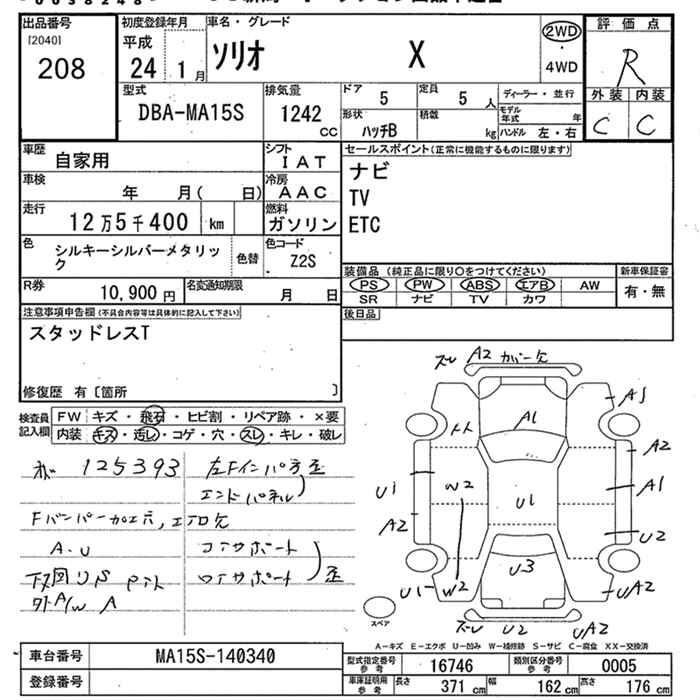 出品番号
[2040]
208
初度登録年月
平成
24 1 月
車名・グレード
ソリオ X
2WD
・
4WD
評価点
R
外装 内装
C C
型式
DBA-MA15S
排気量
1242
CC
ドア
5
定員
5 人
ディーラー・並行
モデル
年式 年
形状
ハッチB
積載
kg
ハンドル 左・右
車歴
自家用
シフト
IAT
車検
年 月( 日)
冷房
AAC
走行
12万5千400 km
燃料
ガソリン
色
シルキーシルバーメタリッ
ク
色替
色コード
Z2S
R券
10,900 円
名変通知期限
月 日
セールスポイント(正常に機能するものに限ります)
ナビ
TV
ETC
装備品 (純正品に限り○をつけてください)
PS PW ABS エアB AW
SR ナビ TV カワ
新車保証書
有・無
後日品
注意事項申告欄 (不具合内容等は具体的に記入して下さい)
スタッドレスT
修復歴 有〔箇所 〕
検査員
記入欄
FW キズ・飛石・ヒビ割・リペア跡・×要
内装 キズ・汚レ・コゲ・穴・スレ・キレ・破レ
125393
左Fインパネ歪
エンドパネル
Fバンパー加工穴, エアロ欠
A.U
コアサポート
ロアサポート 歪
下廻りS
外A/W A
ズレ A2 カバー欠
A1
A1
A2
A1
U2
U1
A2
W2
U1
U3
U1
W2
UA2
ズレ U2 UA2
スペア
A-キズ E-エクボ U-凹み W-補修跡 S-サビ C-腐食 XX-交換済
車台番号
MA15S-140340
登録番号
型式指定番号
参考
16746
類別区分番号
参考
0005
車庫証明用
参考
長さ 371 cm
幅 162 cm
高さ 176 cm